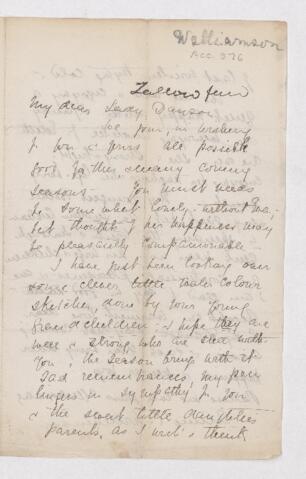 Williamson
Acc 576
Fellow fern
My dear Lady Dawson
We join in wishing
to you & yours all possible
good for this
coming
seasons. You must needs
be somewhat lonely without Eva;
but thought of her happiness may
be pleasantly companionable
I have just been looking over
some clever little water colour
sketches, done by your young
Grandchildren: I hope they are
well & strong who are still with
You; the season brings with it
sad remembrances, my pen
lingers in sympathy for you
& the sweet little daughters
parents, as I write & think